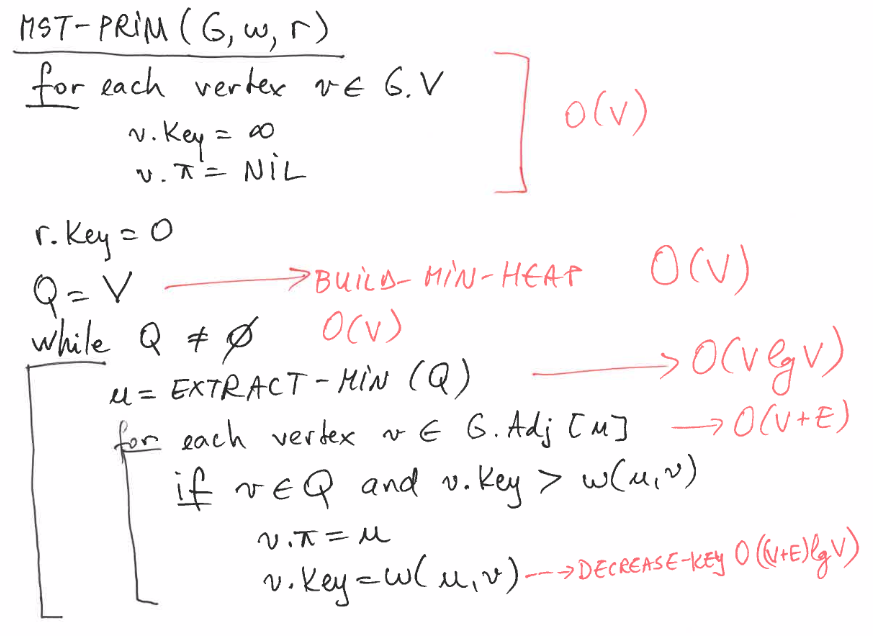 MST-PRIM (G, w, r)
for each vertex v ∈ G.V
v.Key = ∞
v.π = NIL
O(V)
r.Key = 0
Q = V → BUILD-MIN-HEAP O(V)
while Q ≠ ∅ O(V)
u = EXTRACT-MIN (Q) → O(V lg V)
for each vertex v ∈ G.Adj [u] → O(V+E)
if v ∈ Q and v.Key > w(u,v)
v.π = u
v.Key = w(u,v) → DECREASE-KEY O((V+E)lg V)